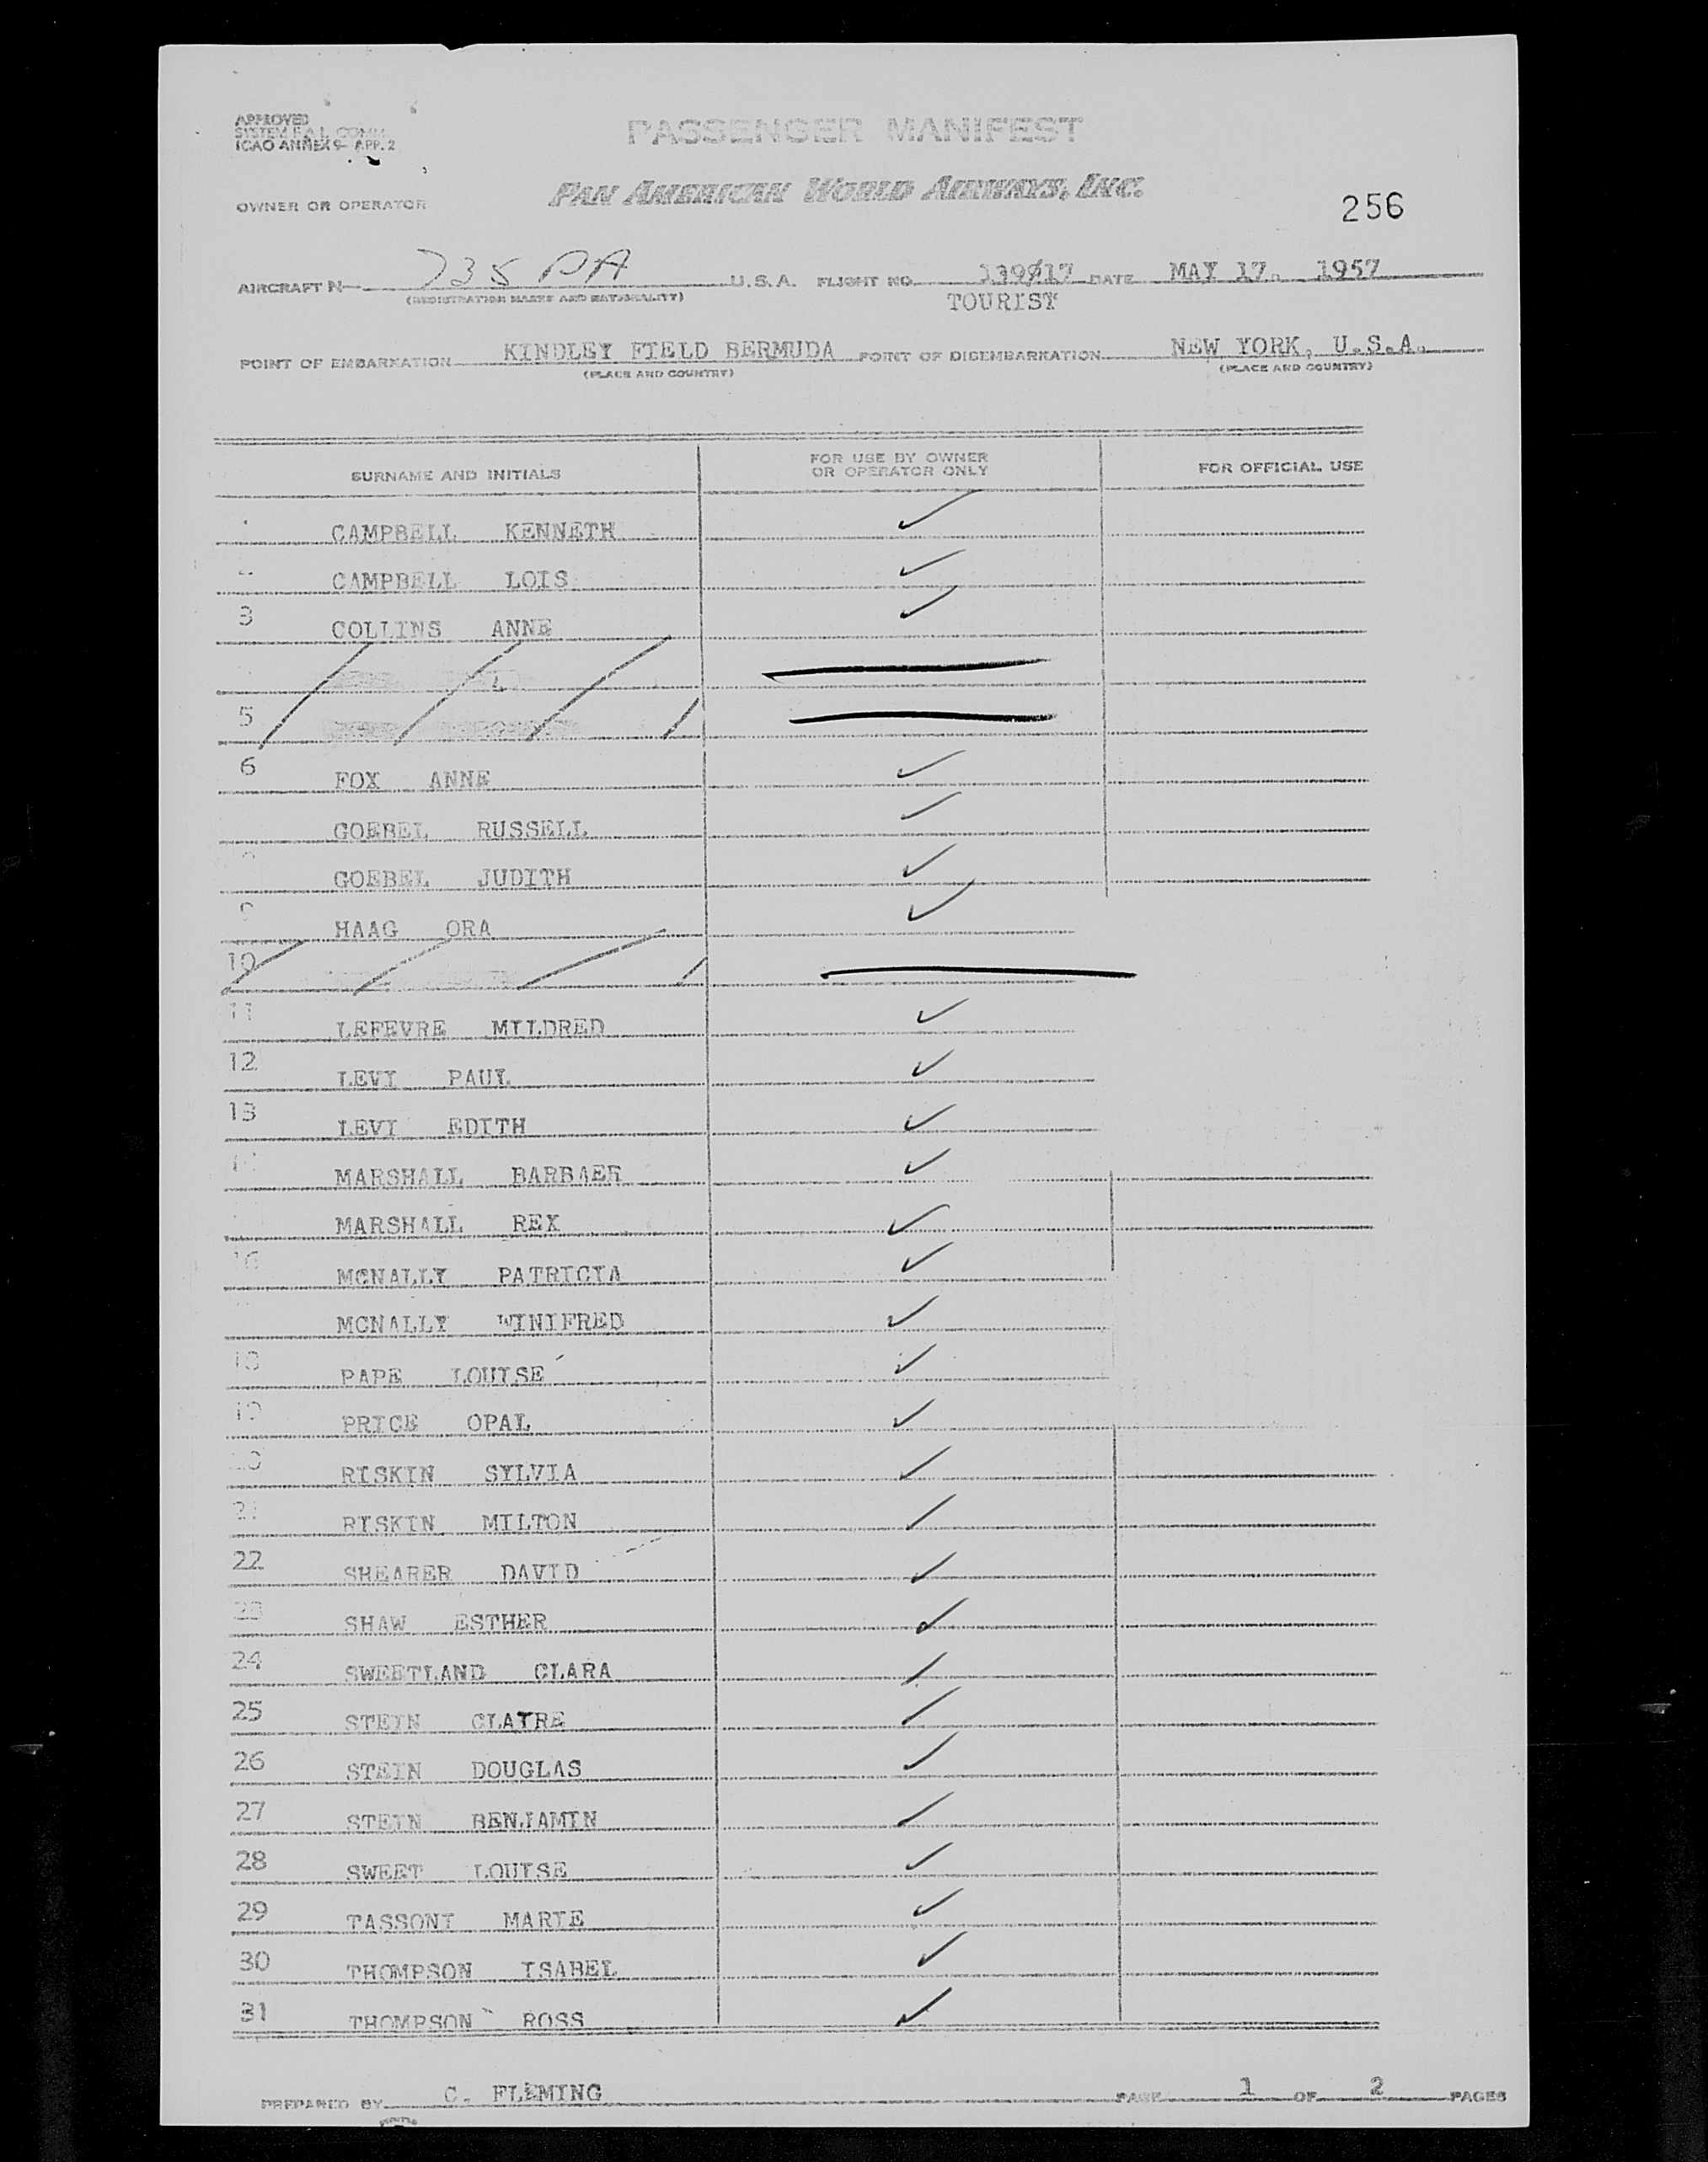 APPROVED
SYSTEM F.A.L. COMM.
ICAO ANNEX 9- APP. 2
PASSENGER MANIFEST
PAN AMERICAN WORLD AIRWAYS, INC.
OWNER OR OPERATOR
256
AIRCRAFT N 735 PA U.S.A. FLIGHT NO. 139/17 DATE MAY 17. 1957
(REGISTRATION MARKS AND NATIONALITY)
TOURIST
POINT OF EMBARKATION KINDLEY FIELD BERMUDA POINT OF DISEMBARKATION NEW YORK, U.S.A.
(PLACE AND COUNTRY) (PLACE AND COUNTRY)
SURNAME AND INITIALS FOR USE BY OWNER OR OPERATOR ONLY FOR OFFICIAL USE
CAMPBELL KENNETH
CAMPBELL LOIS
3 COLLINS ANNE
5
6 FOX ANNE
GOEBEL RUSSELL
GOEBEL JUDITH
9 HAAG ORA
10
11 LEFEVRE MILDRED
12 LEVI PAUL
13 LEVI EDITH
MARSHALL BARBAER
MARSHALL REX
16 MCNALLY PATRICIA
MCNALLY WINIFRED
18 PAPE LOUISE
19 PRICE OPAL
20 RISKIN SYLVIA
21 RISKIN MILTON
22 SHEARER DAVID
23 SHAW ESTHER
24 SWEETLAND CLARA
25 STEIN CLAIRE
26 STEIN DOUGLAS
27 STEIN BENJAMIN
28 SWEET LOUISE
29 TASSONI MARIE
30 THOMPSON ISABEL
31 THOMPSON ROSS
PREPARED BY C. FLEMING PAGE 1 OF 2 PAGES